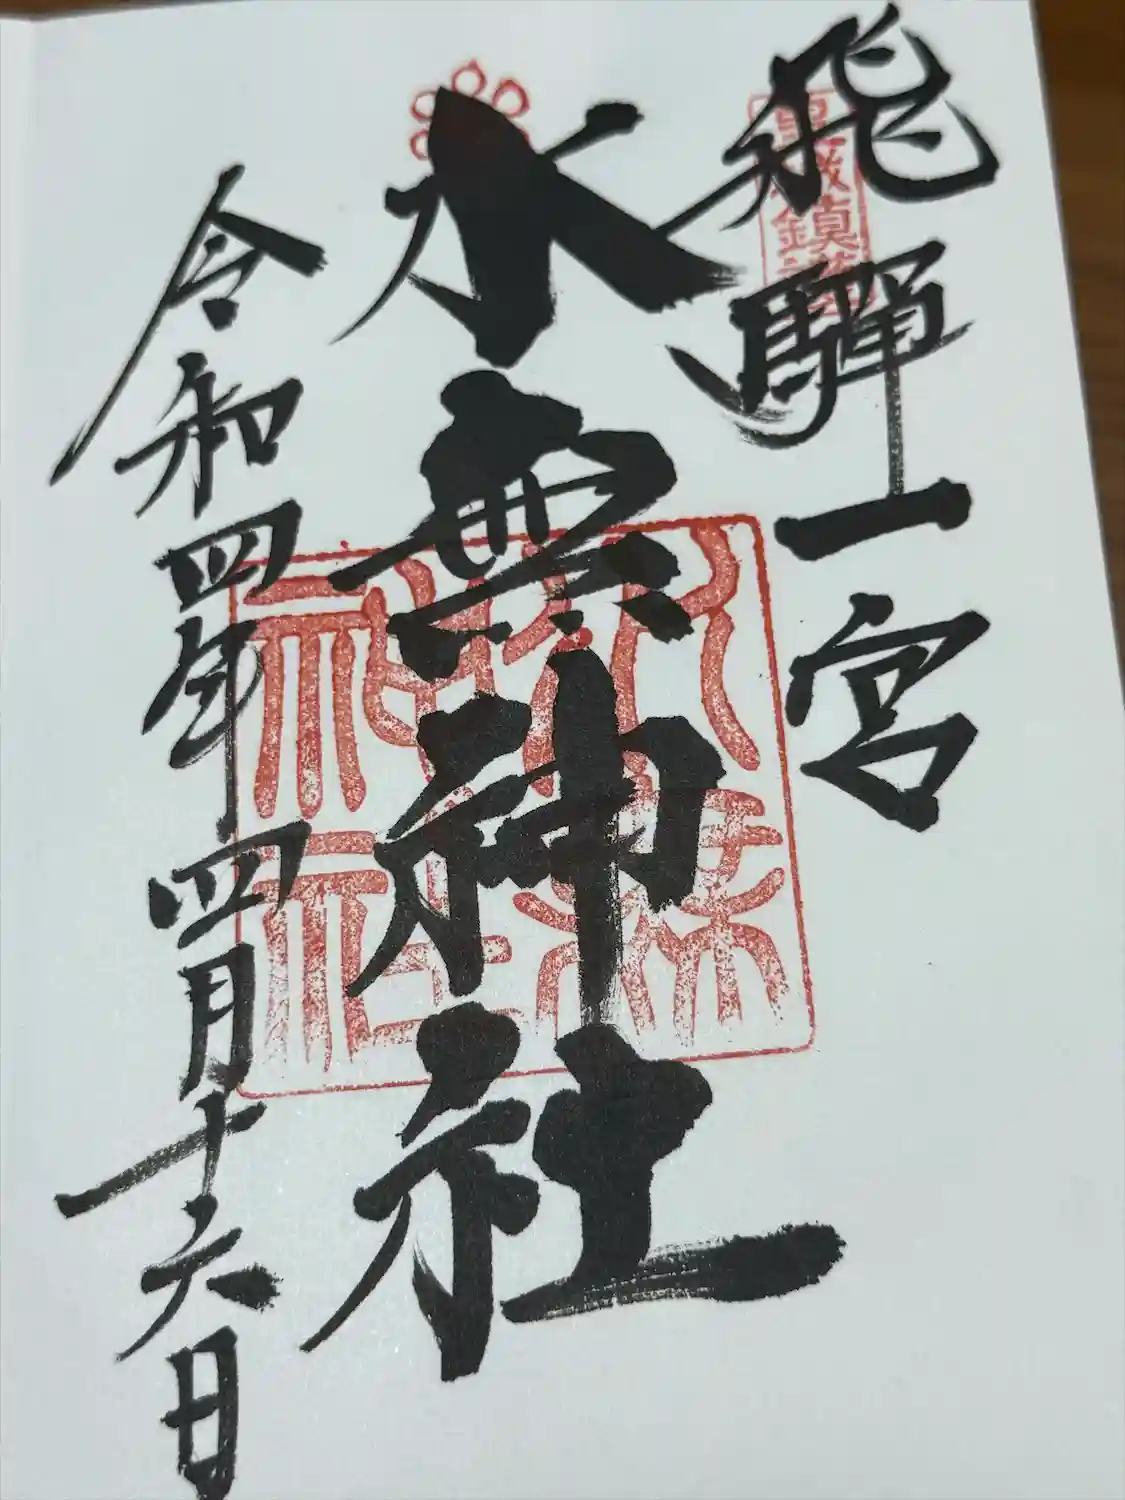 飛騨一宮
水無神社
令和四年四月十六日
水無神社